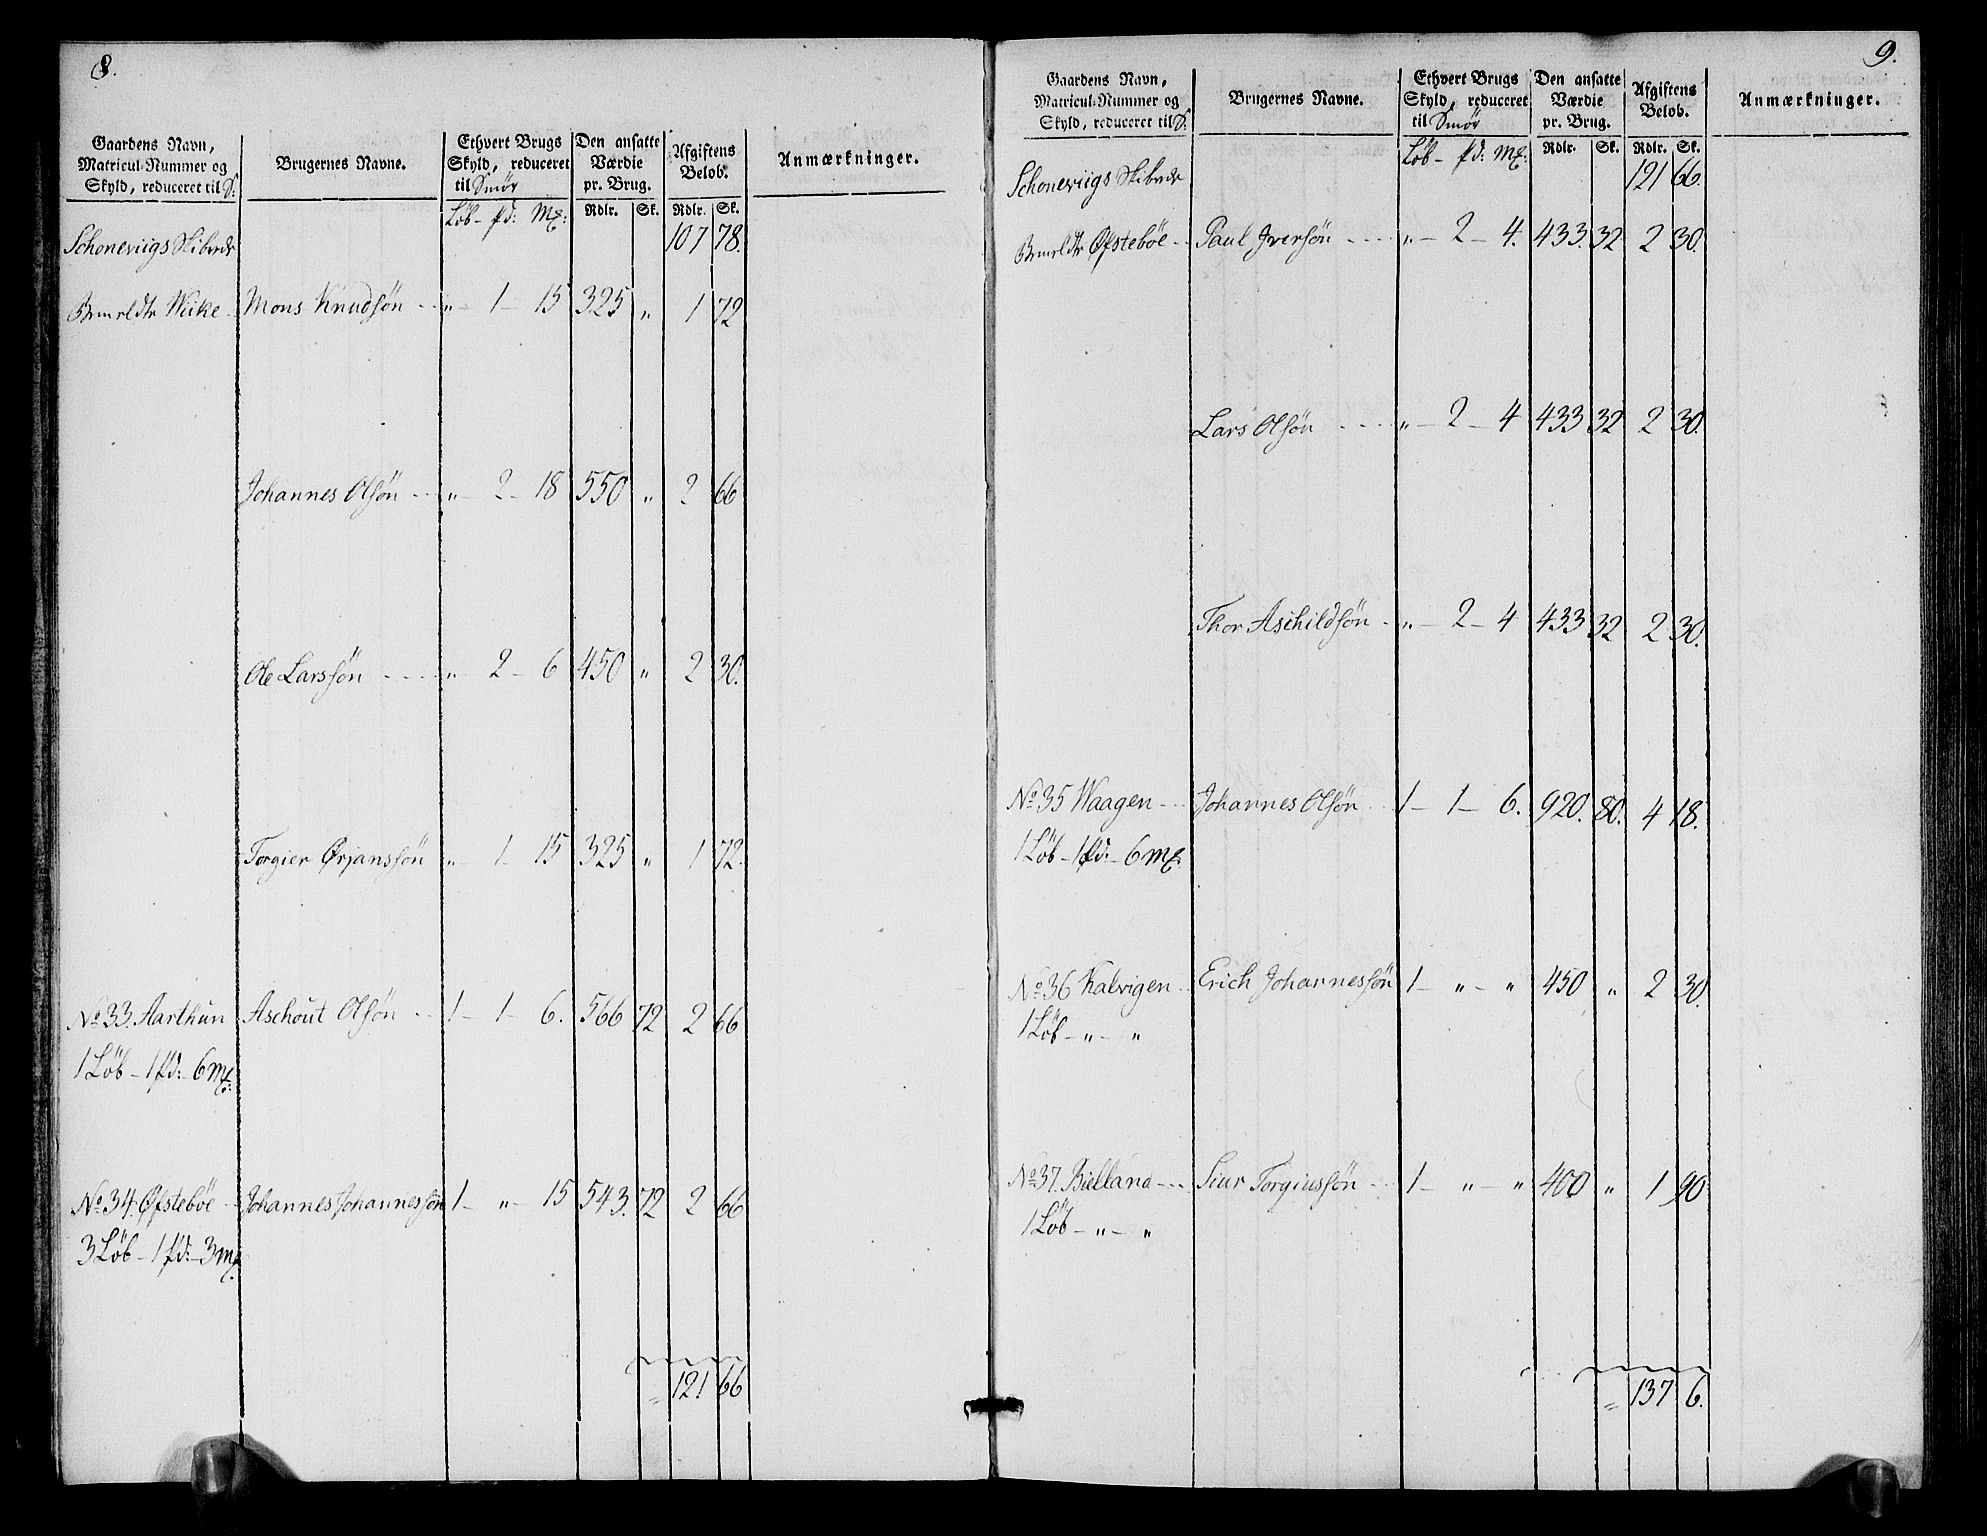 8.
Gaardens Navn, Matricul-Nummer og Skyld, reduceret til S: | Brugernes Navne. | Ethvert Brugs Skyld, reduceret til Smör | Den ansatte Værdie pr. Brug. | Afgiftens Belob. | Anmærkninger.
Löb - pd: Mk: | Rdlr. | Sk. | Rdlr. | Sk.
Schoneviigs Skibrede 107 78.
Wiike Mons Knudsön „ - 1 - 15 325 „ 1 72
Johannes Olsön „ - 2 - 18 550 „ 2 66
Ole Larssön „ - 2 - 6 450 „ 2 30.
Torgier Ørjanssön „ - 1 - 15 325 „ 1 72.
No 33. Aarthun Aschout Olsön 1 - 1 - 6. 566 72 2 66
1 Löb - 1 pd: - 6 Mk:
No 34. Øfsteböe Johannes Johannessön 1 - „ - 15 543. 72 2 66
3 Löb - 1 pd: - 3 Mk
121 66
9.
Gaardens Navn, Matricul-Nummer og Skyld, reduceret til S: | Brugernes Navne. | Ethvert Brugs Skyld, reduceret til Smör | Den ansatte Værdie pr. Brug. | Afgiftens Belob. | Anmærkninger.
Löb - pd: Mk: | Rdlr. | Sk. | Rdlr. | Sk.
Schoneviigs Skibrede 121 66.
Øfsteböe Paul Iversön „ - 2 - 4. 433. 32 2 30.
Lars Olsön „ - 2 - 4 433 32 2 30.
Thor Aschildsön „ - 2 - 4 433 32 2 30.
No 35 Waagen Johannes Olsön 1 - 1 - 6. 920. 80. 4 18.
1 Löb - 1 pd: - 6 Mk.
No 36 Kalvigen Erich Johannessön 1 - „ - „ 450 „ 2 30.
1 Löb - „ - „
No 37. Bielland Siur Torgiussön 1 - „ - „ 400 „ 1 90
1 Löb - „ - „
137 6.